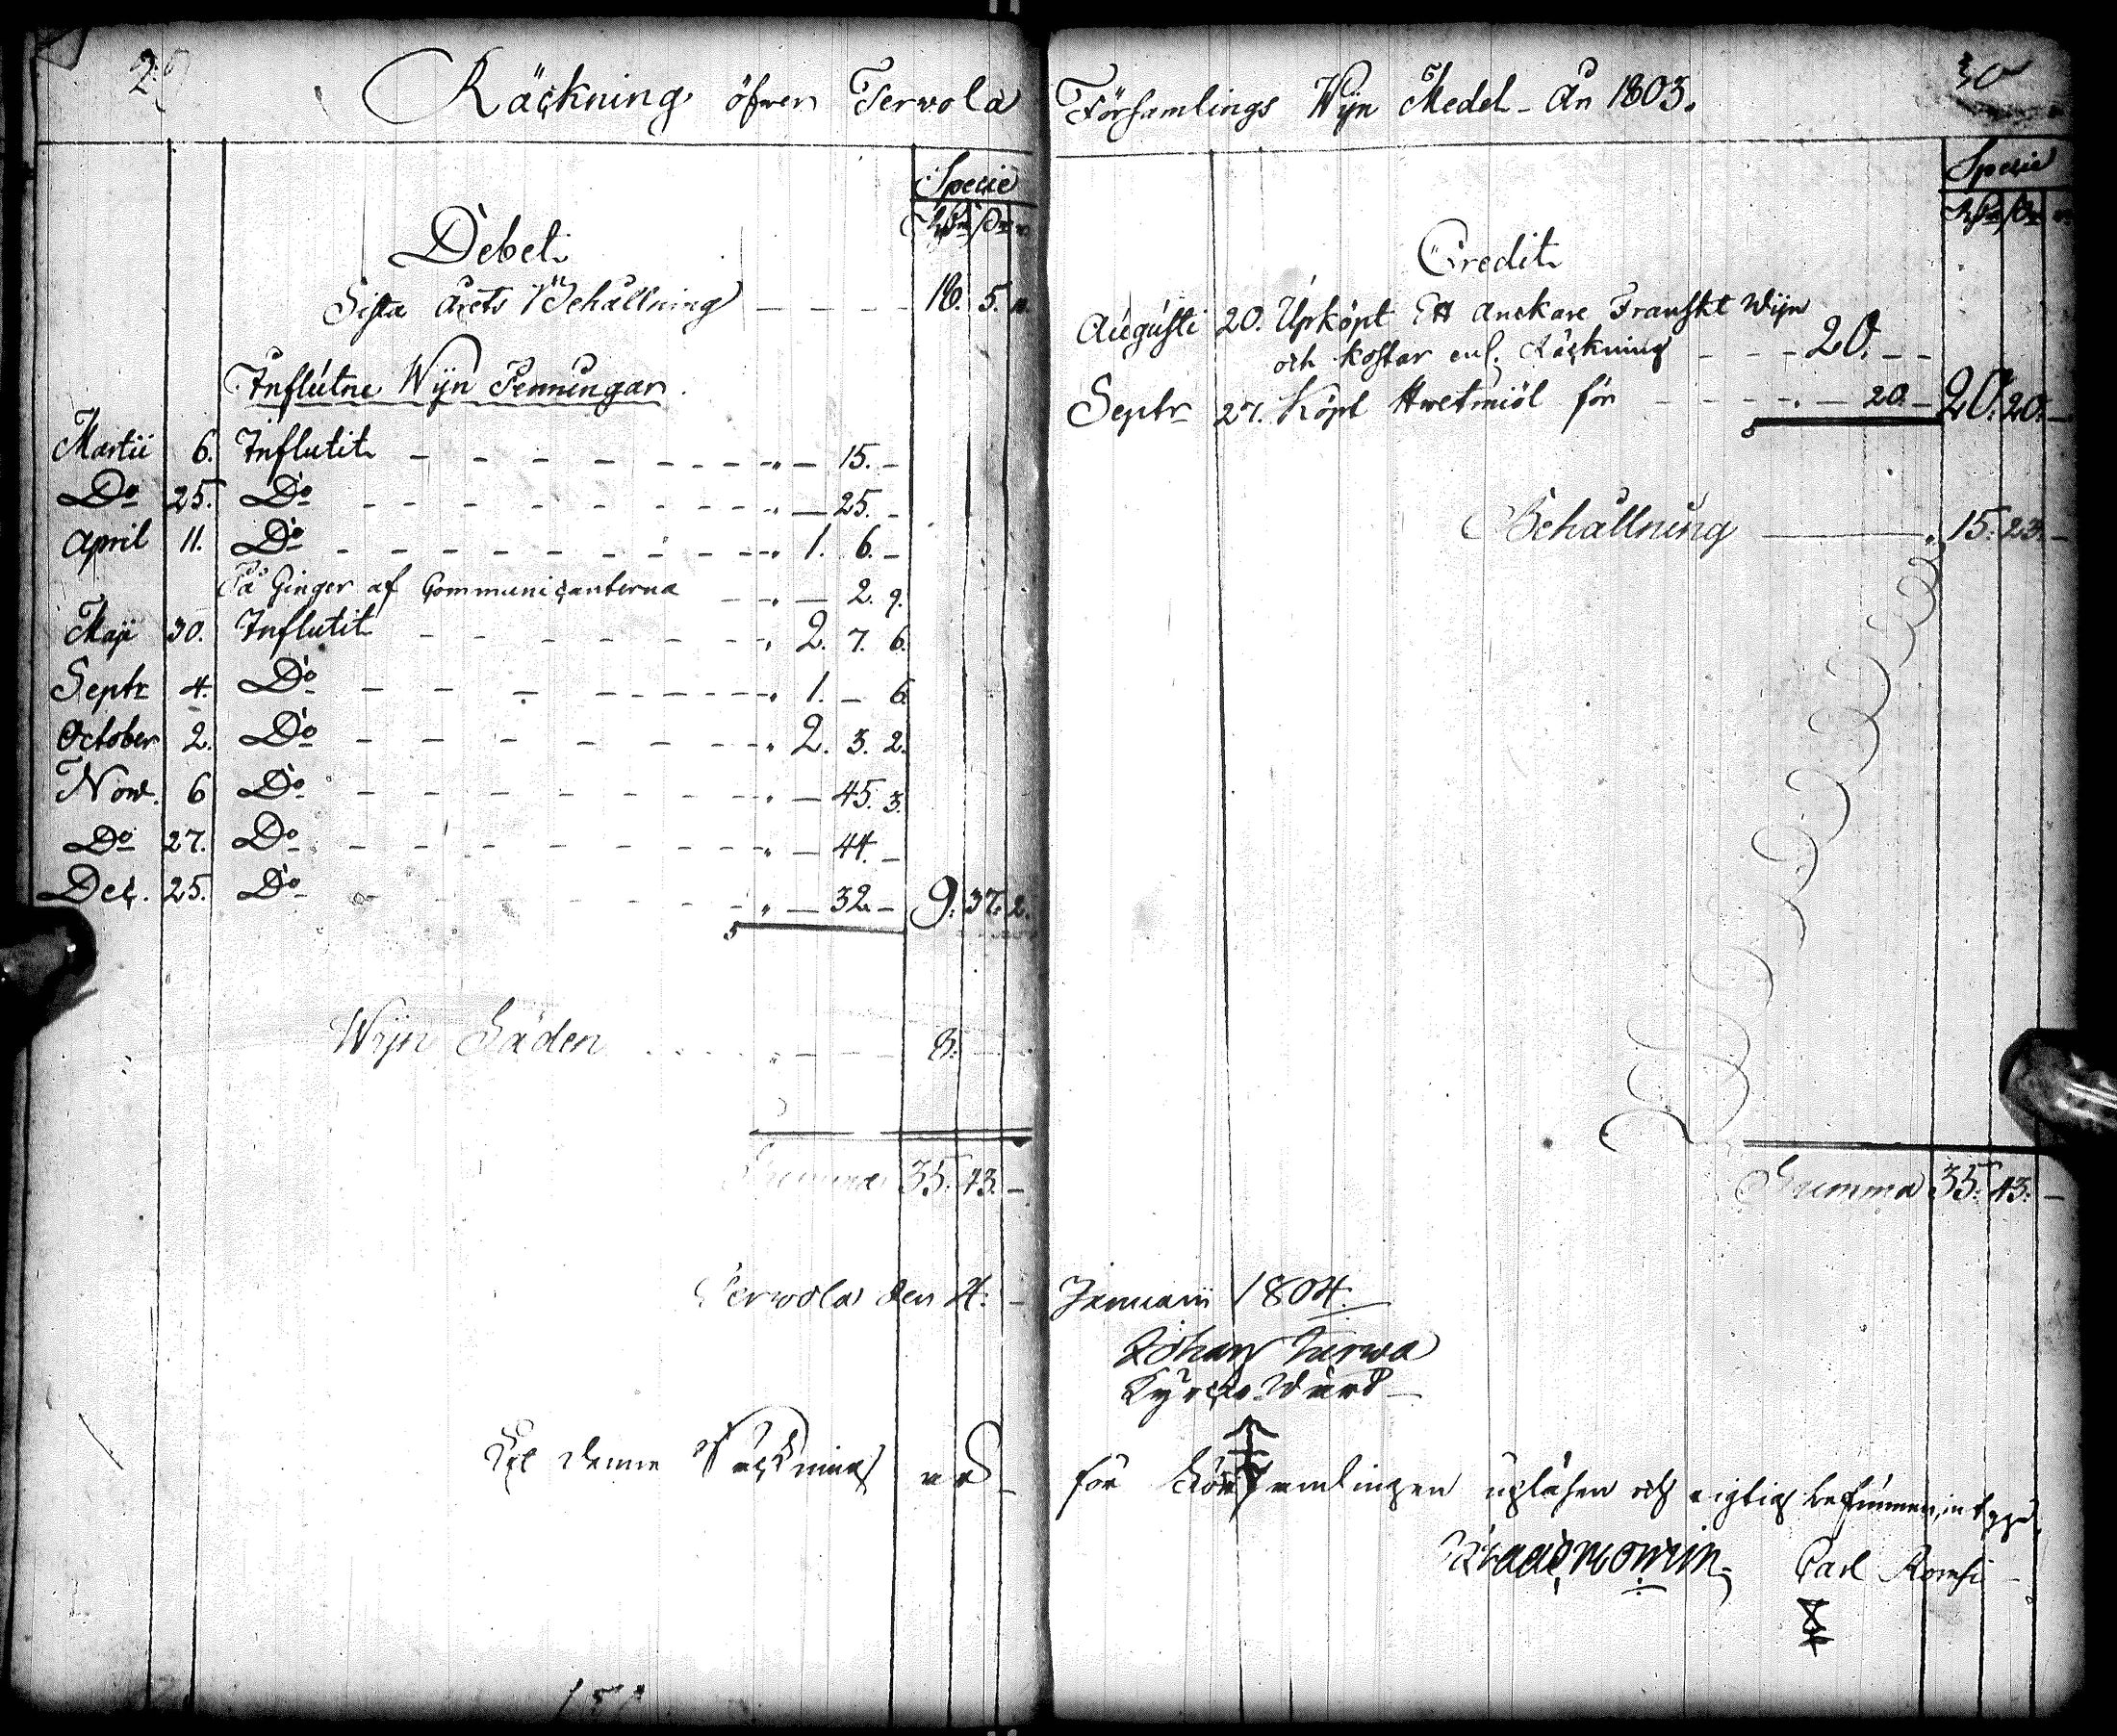 29
Räckning öfwer Terwola
Specie
Debet.
Sista Årets Behållning — — — — 18. 5. 10.
Influtne Wijn Penningar.
Martii 6. Influtit — — — — — „ — 15. —
Do 25. Do — — — — — „ — 25. —
April 11. Do — — — — — „ 1. 6. —
På Ginger af Communicanterna — „ — 2. 9.
Maji 30. Influtit — — — — „ 2. 7. 6.
Septr 4. Do — — — — — „ 1. — 6
October 2. Do — — — — — „ 2. 3. 2.
Now. 6 Do — — — — — „ — 45. 3.
Do 27. Do — — — — — „ — 44. —
Dec. 25. Do — — — — — „ — 32. — 9. 37. 2.
Wijn Säden . . . . „ — — — 8. — —
Summa 35. 43. —
Terwola den 4. —
denne Räckning
30
Församlings Wijn Medel — År 1803.
Specie
Credit
Augusti 20. Upköpt Ett Anckare Franskt Wijn
och kostar enl. Räckning — — — 20. — —
Septr 27. Köpt Hwetmiöl för — — — — 20. — 20. 20. —
Behållning — „ 15. 23. —
Summa 35. 43. —
Januarii 1804.
Johan Turwa
Kyrcko Wärd
för Församlingen upläsen och rigtig befunnen,
Carl